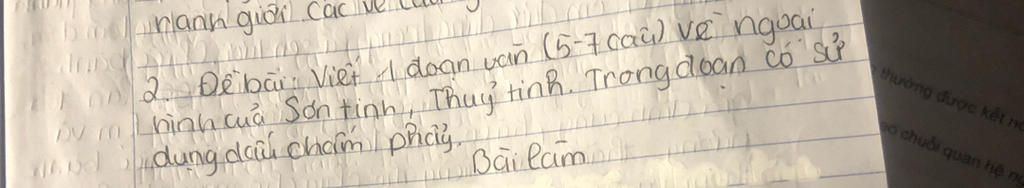 mạnh giỏi các vẻ
2. Đề bài: Viết 1 đoạn văn (5-7 câu) về ngoại
hình của Sơn tinh, Thuỷ tinh. Trong đoạn có sử
dụng dấu chấm phẩy.
Bài làm
thường được kết
chuỗi quan hệ